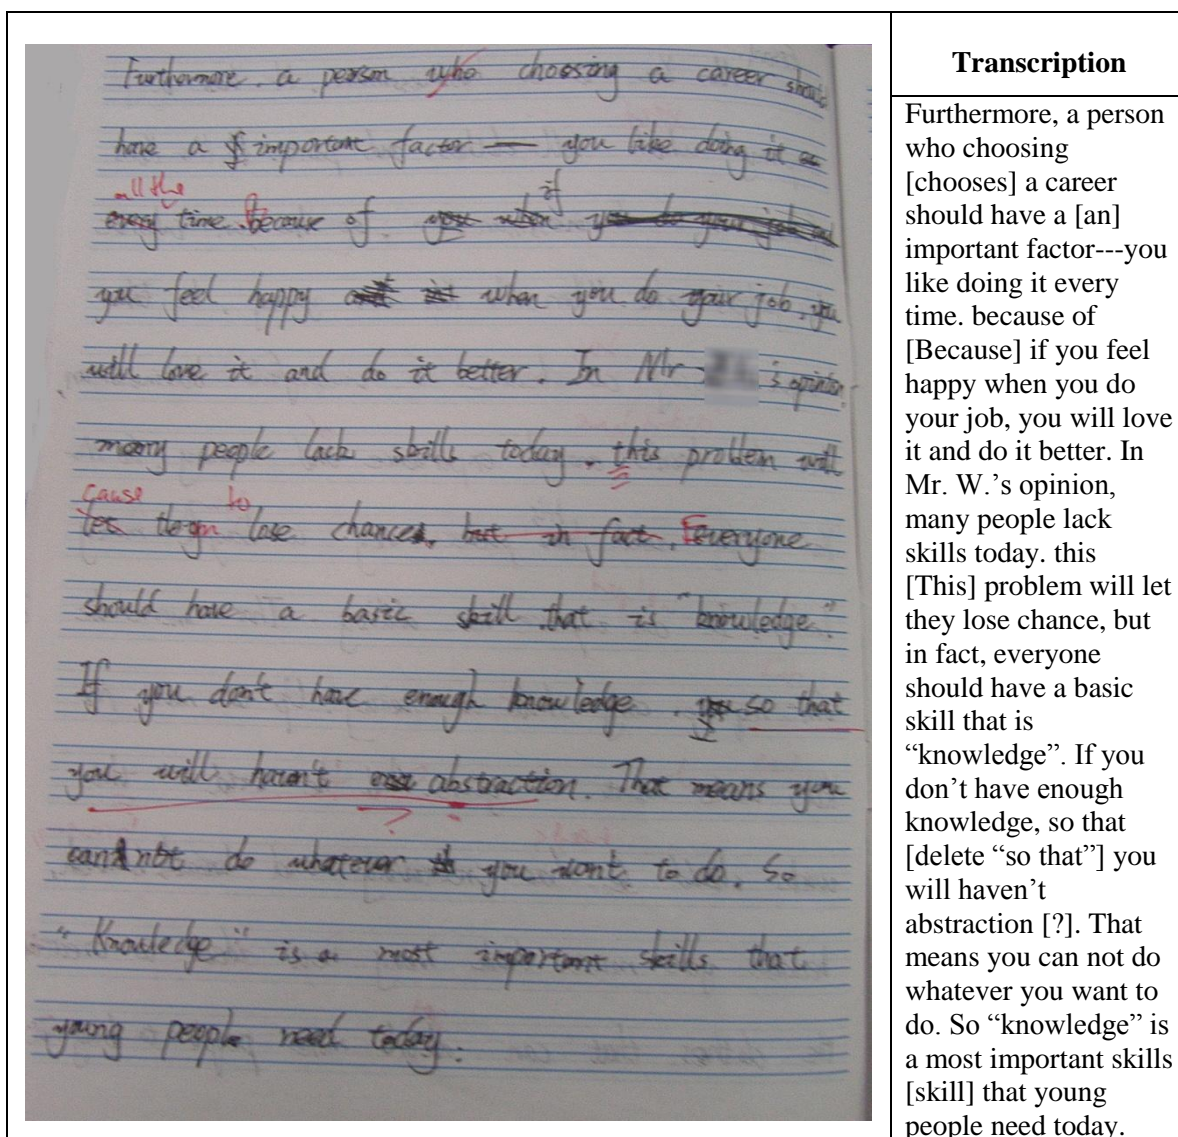 Furthermore, a person who choosing a career should
have a important factor — you like doing it
all the
every time. because of if
you feel happy when you do your job, you
will love it and do it better. In Mr 's opinion,
many people lack skills today. this problem will
cause to
let them lose chances, but in fact, Everyone
should have a basic skill that is "knowledge".
If you don't have enough knowledge, so that
you will haven't abstraction. That means you
?
can not do whatever you want to do. So
"Knowledge" is a most important skills that
young people need today.
Transcription
Furthermore, a person
who choosing
[chooses] a career
should have a [an]
important factor---you
like doing it every
time. because of
[Because] if you feel
happy when you do
your job, you will love
it and do it better. In
Mr. W.'s opinion,
many people lack
skills today. this
[This] problem will let
they lose chance, but
in fact, everyone
should have a basic
skill that is
“knowledge”. If you
don't have enough
knowledge, so that
[delete “so that”] you
will haven't
abstraction [?]. That
means you can not do
whatever you want to
do. So “knowledge” is
a most important skills
[skill] that young
people need today.